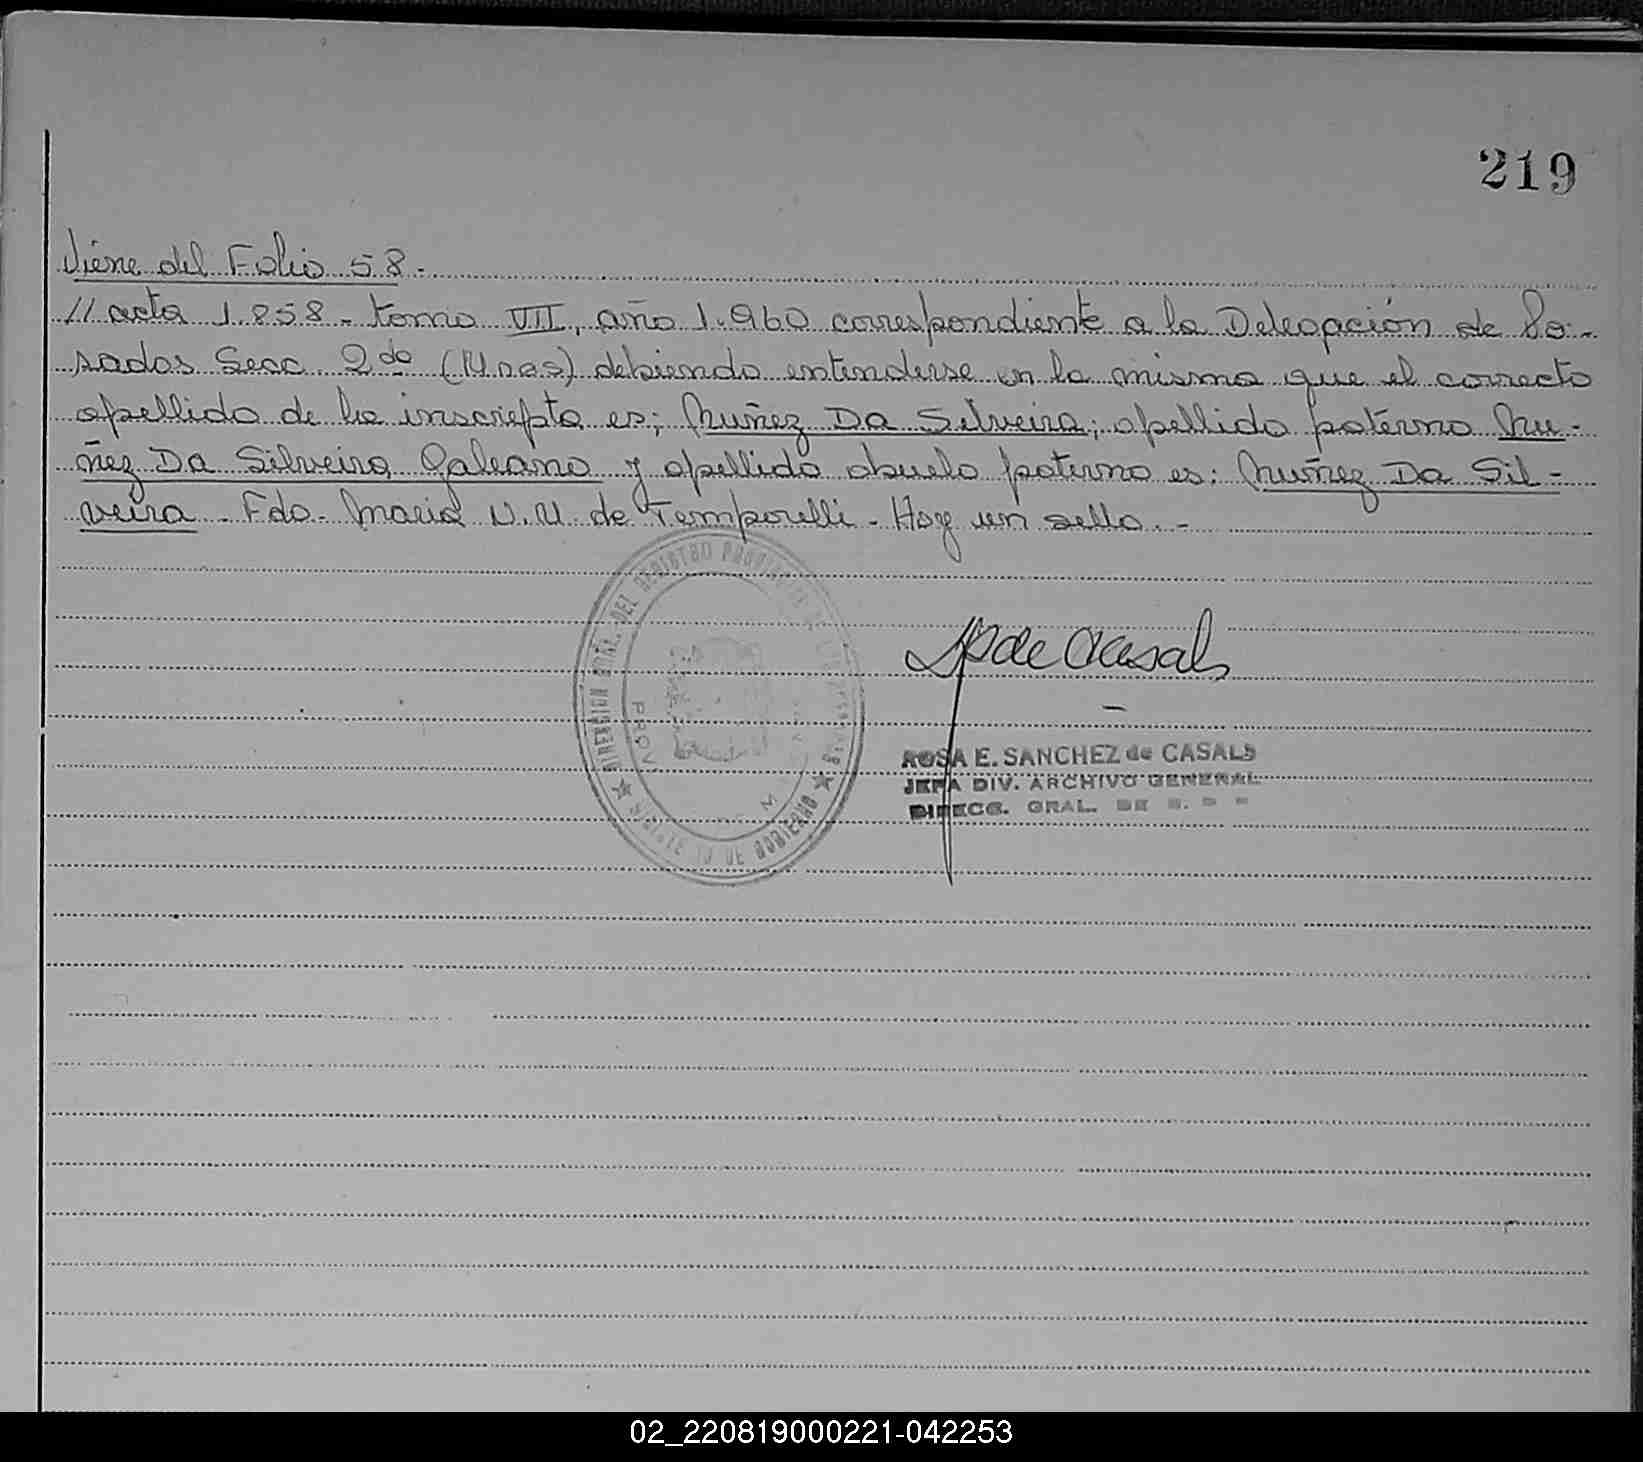 219
Viene del Folio 58.-
// acta 1.858 - tomo VII, año 1.960 correspondiente a la Delegación de Po-
sadas Secc. 2da (Mnes) debiendo entenderse en la misma que el correcto
apellido de la inscripta es; Nuñez Da Silveira; apellido paterno Nu-
ñez Da Silveira Galeano y apellido abuelo paterno es: Nuñez Da Sil-
veira - Fdo. Maria N. U. de Temporelli - Hay un sello. -
DIRECCION GRAL. DEL REGISTRO PROVINCIAL DE LAS PERSONAS
PROV
DE GOBIERNO
de Casals
ROSA E. SANCHEZ de CASALS
JEFA DIV. ARCHIVO GENERAL
DIRECC. GRAL. DE
02_220819000221-042253